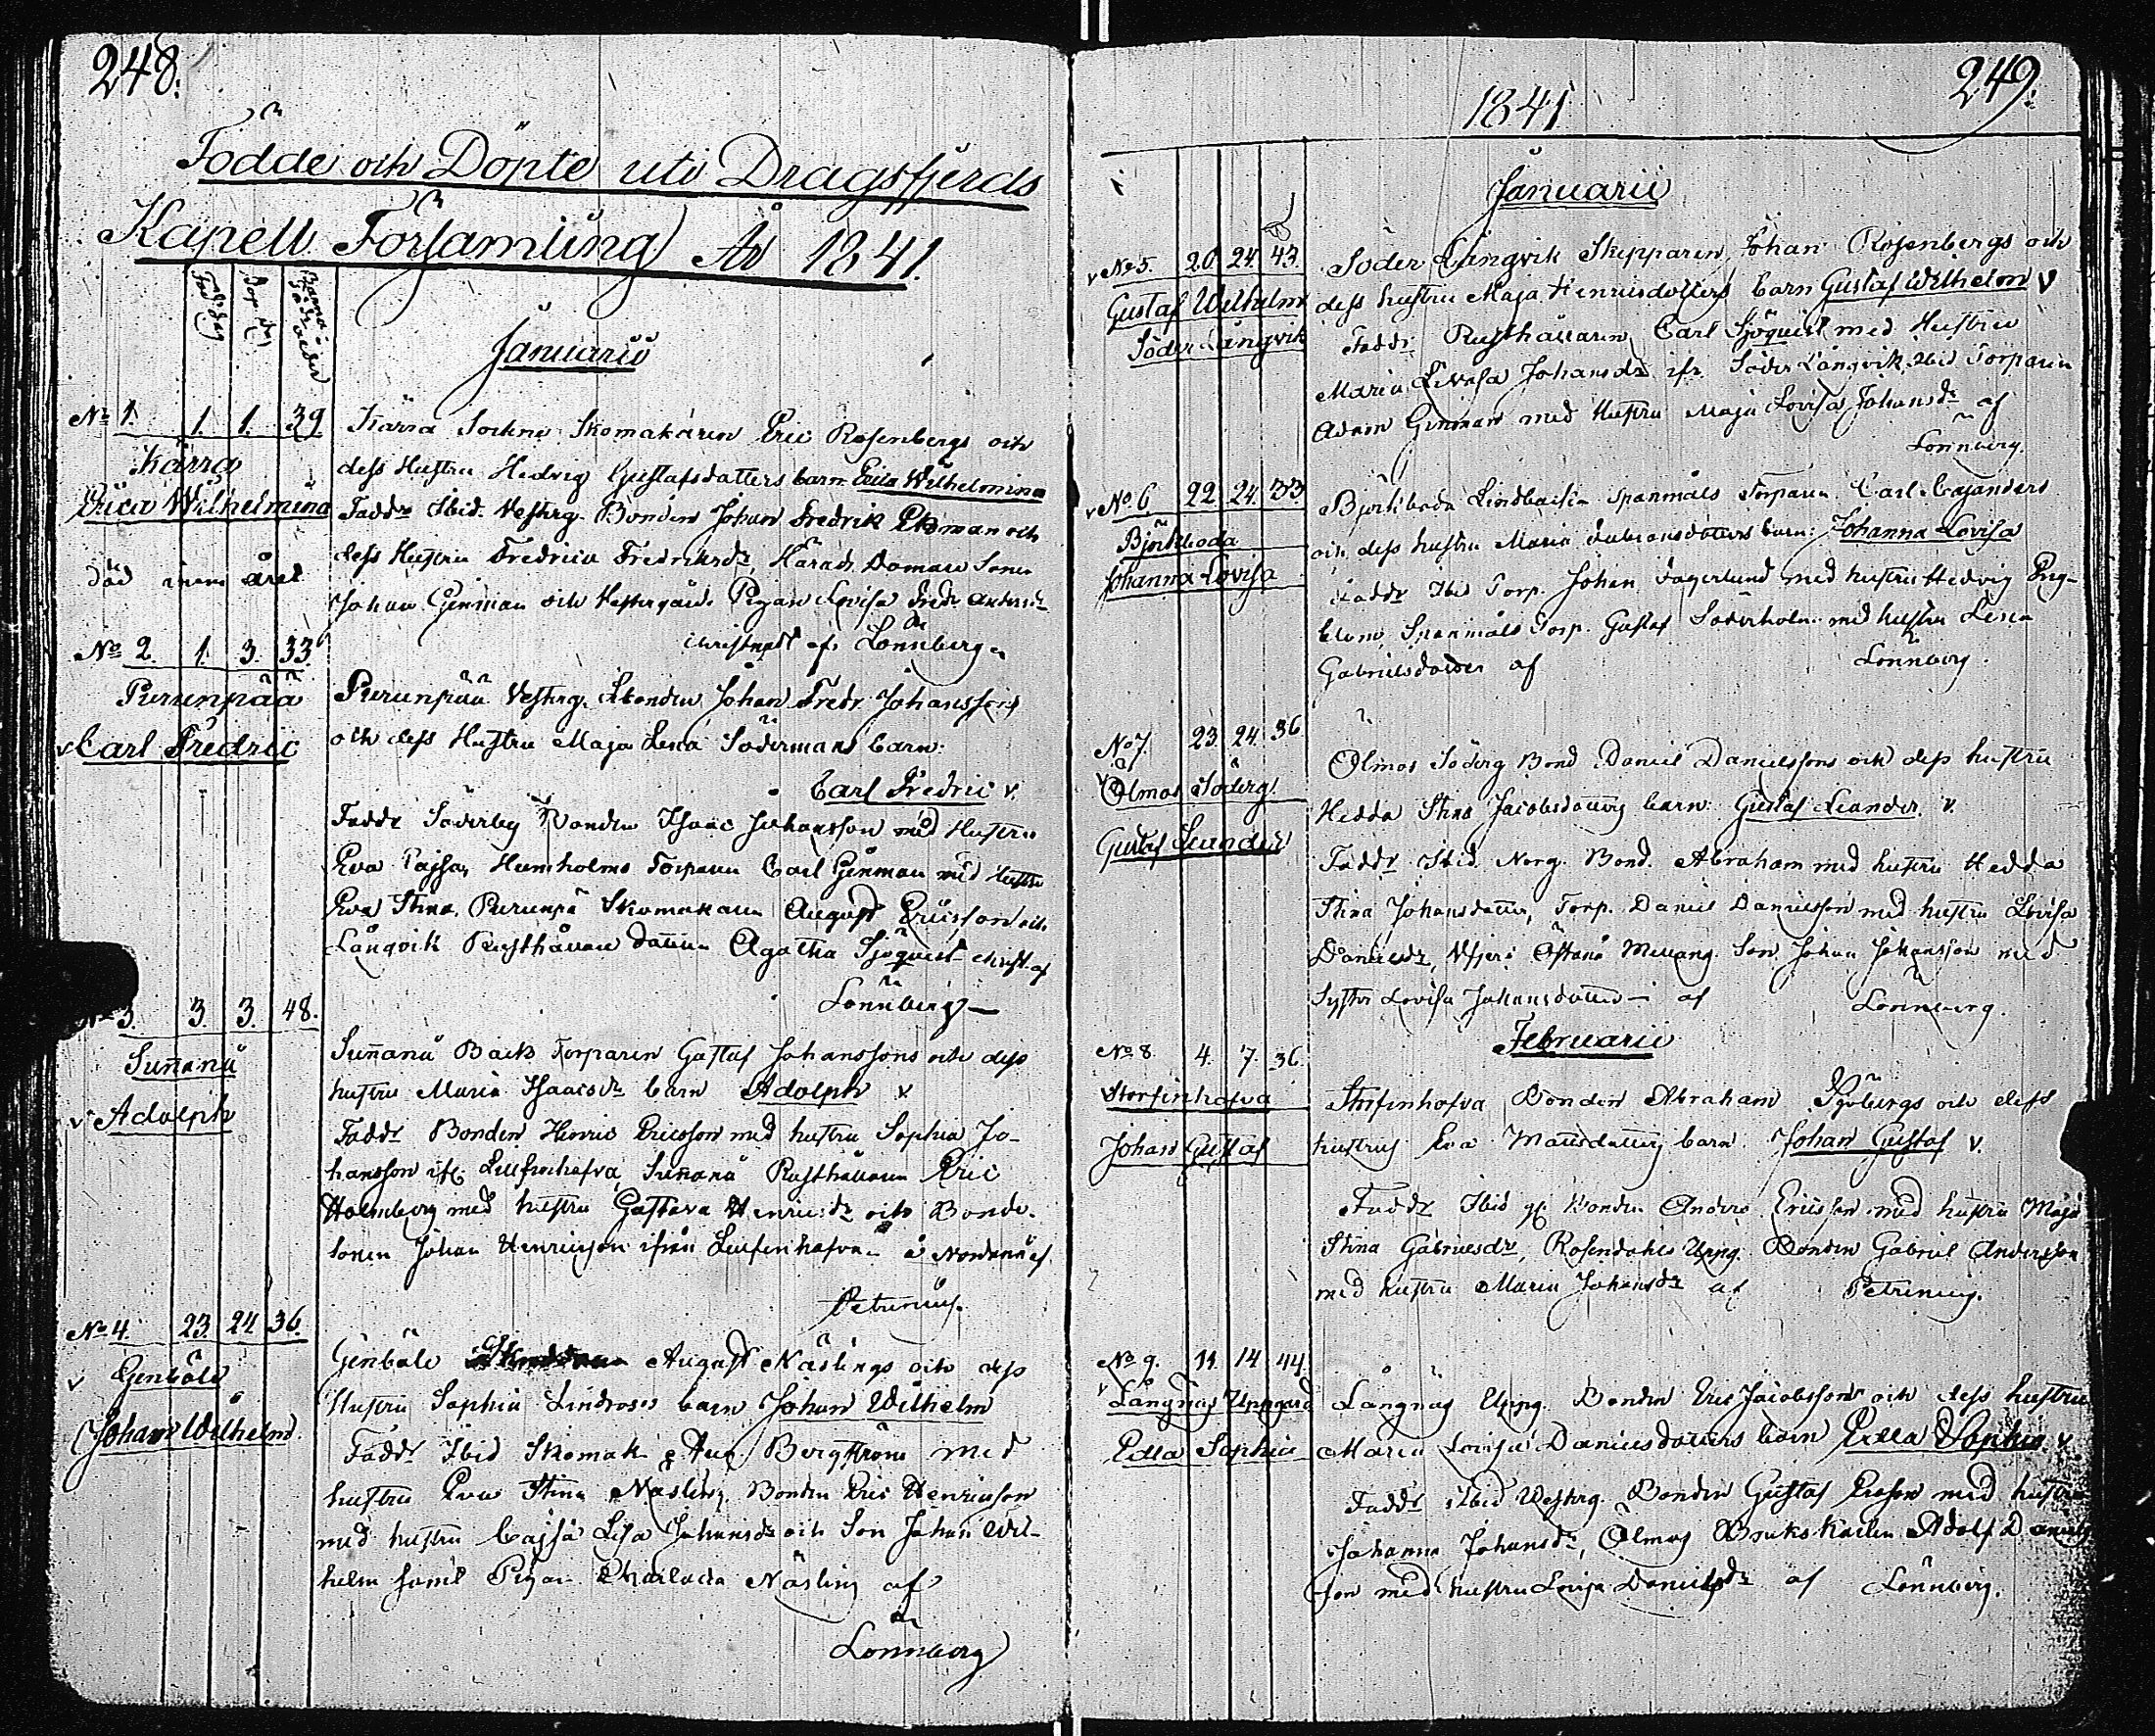 248.
Födde och Döpte uti Dragsfjerds
Kapell Församling År 1841.
Januarii
No 1. 1. 1. 39
Kärra
Erica Wilhelmina
död inom året
Kärra Sockne Skomakaren Eric Rosenbergs och
dess Hustru Hedvig Gustafsdotters barn Erica Wilhelmina
Faddr Ibid. Vestrg. Bonden Johan Fredrik Ekman och
dess Hustru Fredrica Fredriksdr, Härads Domare Sonen
Johan Genman och Vestergårds Pigan Lovisa Andersdr
christnadt af Lönnberg
No 2. 1. 3. 33.
Purunpää
v Carl Fredric
Purunpää Vestrg. Bonden Johan Fredr. Johanssons
och dess Hustru Maja Lena Södermans barn.
Carl Fredric v.
Faddr Söderby Bonden Isaac Johansson med Hustru
Eva Cajsa, Humholms Torparen Carl Genman med Hustru
Eva Stina, Purunpä Skomakaren August Ericsson och
Långvik Rusthållare dottren Agatha Sjöqvist christ. af
Lönnberg
No 3. 3. 3. 48.
Sunnanå
v Adolph
Sunnanå Back Torparen Gustaf Johanssons och dess
hustru Maria Isaacsdr barn Adolph v
Faddr Bonden Henric Ericsson med hustru Sophia Jo-
hansson ifr. Lillfinhofva, Sunnanå Rusthållaren Eric
Holmberg med hustru Gustava Henricsdr och Bonde-
sonen Johan Henricsson ifrån Lillfinhofva å Nordanå af
Petrenius.
No 4. 23. 24. 36.
v Genböle
Johan Wilhelm
Genböle August Näslings och dess
Hustru Sophia Lindroos barn Johan Wilhelm
Faddr Ibid Skomak. Aug. Bergström med
hustru Eva Stina Näsling, Bonden Eric Henricsson
med hustru Cajsa Lisa Johansdr och Son Johan Wil-
helm samt Pigan Charlotta Näsling af
Lönnberg
249.
1841
Januarii
v No 5. 20. 24. 43.
Gustaf Wilhelm
Söder Långvik
Söder Långvik Skepparen Johan Rosenbergs och
dess hustru Maja Henricsdotters barn Gustaf Wilhelm v
Faddr Rusthållaren Carl Sjöquist med Hustru
Maria Lovisa Johansdr ifr. Söder Långvik, Ibid Torparen
Adam Genman med Hustru Maja Lovisa Johansdr af
Lönnberg.
v No 6. 22. 24. 33.
Björkboda
Johanna Lovisa
Björkboda Lindbacka Spanmåls Torparen Carl Cajanders
och dess hustru Maria barn: Johanna Lovisa
Faddr Ibid Torp. Johan Fagerlund med hustru Hedvig Eng-
blom, Spanmåls Torp. Gustaf Söderholm med hustru Lena
Gabrielsdotter af Lönnberg.
No 7. 23. 24. 36.
v Ölmos Söderg.
Gustaf Leander
Ölmos Söderg Bond. Daniel Danielssons och dess hustru
Hedda Stina Jacobsdotters barn: Gustaf Leander. v.
Faddr Ibid. Norg. Bond. Abraham med hustru Hedda
Stina Johansdotter, Torp. Daniel Danielsson med hustru Lovisa
Danielsdr, Mellang. Son Johan Johansson med
Syster Lovisa Johansdotter - af Lönnberg.
Februarii
No 8. 4. 7. 36.
Storfinhofva
Johan Gustaf
Storfinhofva Bonden Abraham Sjöbergs och dess
hustrus Eva Mattsdotters barn. Johan Gustaf v.
Faddr Ibid Bonden Anders Ericsson med hustru Maja
Stina Gabrielsdr, Rosendahls Uppg. Bonden Gabriel Andersson
med hustru Maria Johansdr af Petrenius.
No 9. 11. 14. 44.
v Långnäs Uppgård
Edla Sophia
Långnäs Uppg. Bonden Eric Jacobssons och dess hustru
Maria Lovisa Danielsdotters barn Edla Sophia v
Faddr Ibid Vestrg. Bonden Gustaf Ersson med hustru
Johanna Johansdr, Ölmos Brukskarlen Adolf Daniels-
son med hustru Lovisa Danielsdr af Lönnberg.